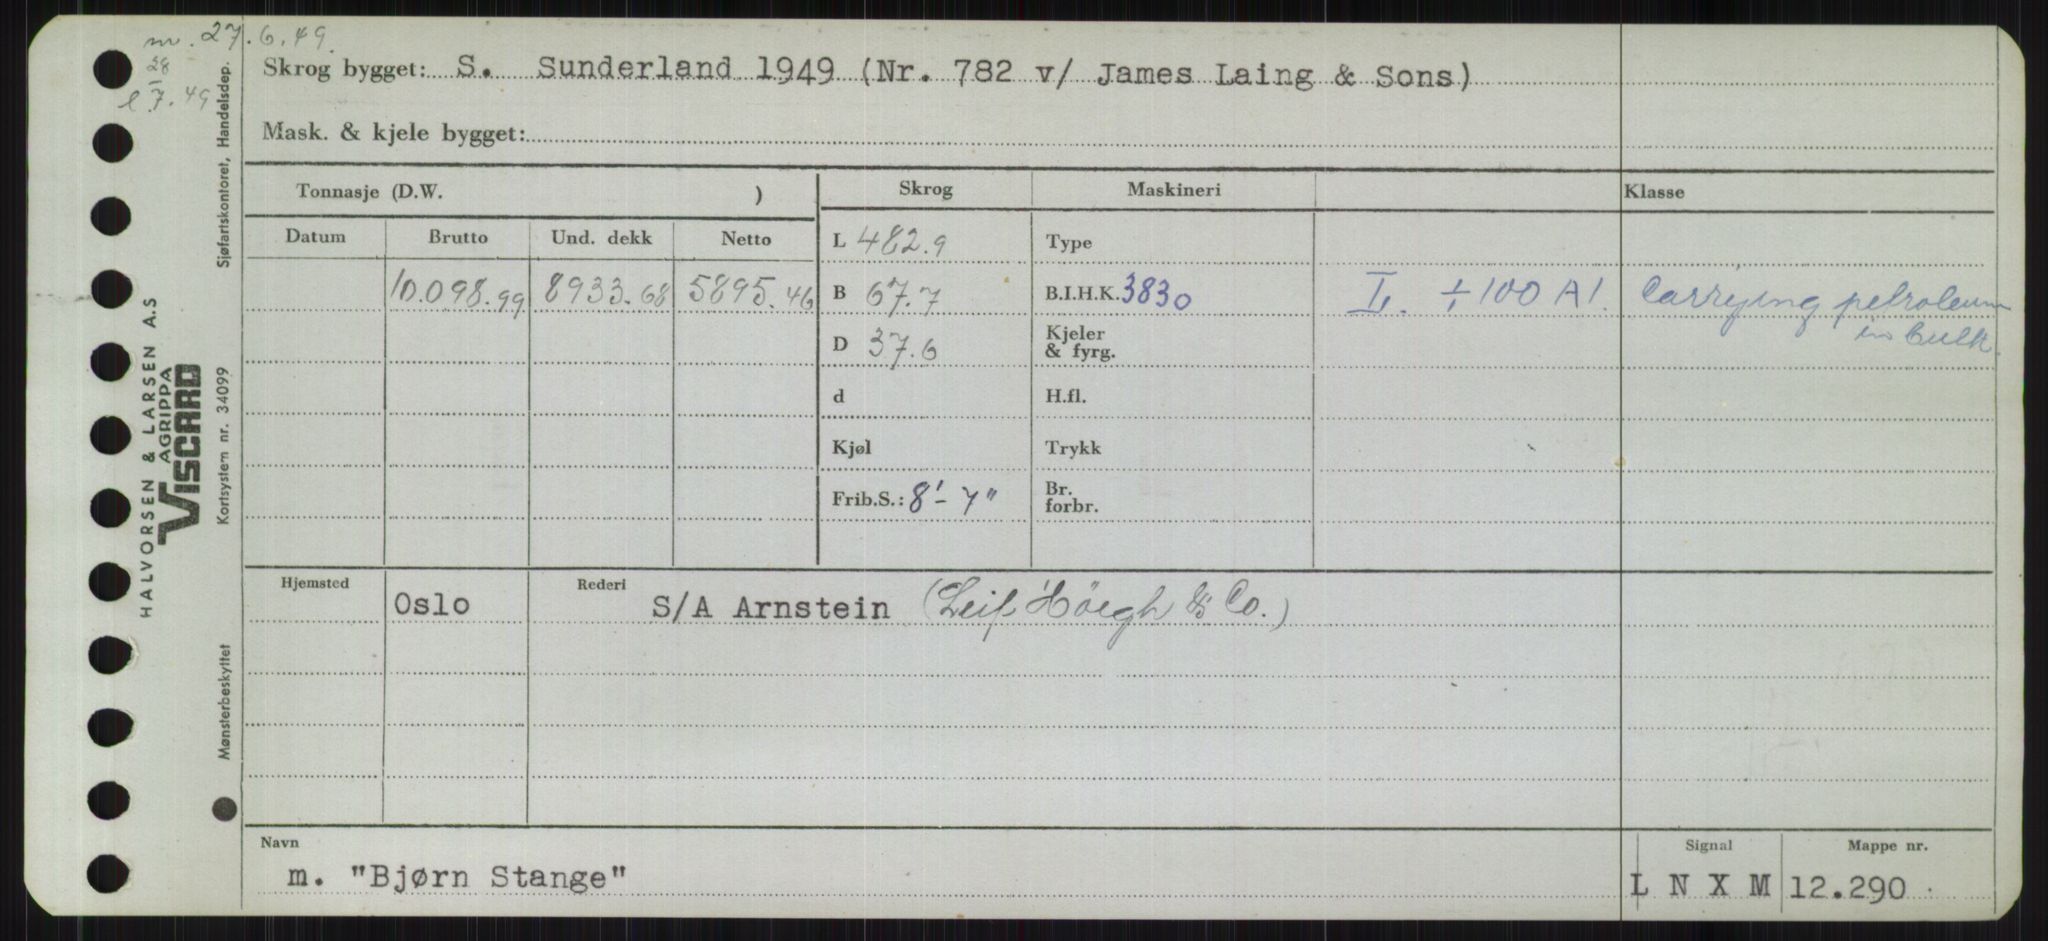 m. 27.6.49.
28
l 7.49
Skrog bygget: S. Sunderland 1949 (Nr. 782 v/ James Laing & Sons)
Mask. & kjele bygget:
Tonnasje (D.W. )
Skrog Maskineri Klasse
Datum Brutto Und. dekk Netto
L 482.9 Type
10.098.99 8933.68 5895.46
B 67.7 B.I.H.K. 3830 I. +100 A1. Carrying petroleum
in bulk.
D 37.6 Kjeler
& fyrg.
d H.fl.
Kjøl Trykk
Frib.S.: 8'-7" Br.
forbr.
Hjemsted Rederi
Oslo S/A Arnstein (Leif Höegh & Co.)
Navn Signal Mappe nr.
m. "Bjørn Stange" L N X M 12.290
HALVORSEN & LARSEN A.S
AGRIPPA
VISCARD
Mønsterbeskyttet Kortsystem nr. 34099 Sjøfartskontoret, Handelsdep.